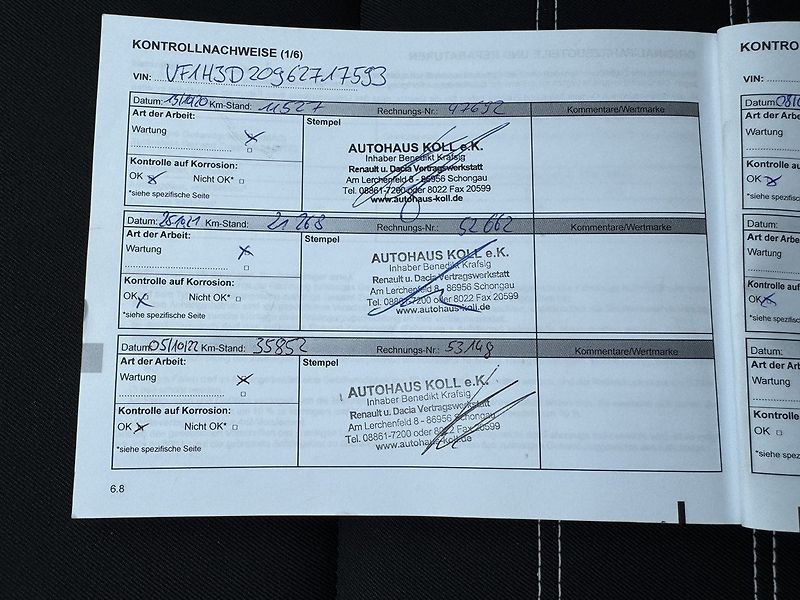 KONTROLLNACHWEISE (1/6)
VIN: VF1H3D20962717593
Datum: Km-Stand: 11527 Rechnungs-Nr.: 47692 Kommentare/Wertmarke
Art der Arbeit: Stempel
Wartung
Kontrolle auf Korrosion:
OK Nicht OK*
*siehe spezifische Seite
AUTOHAUS KOLL e.K.
Inhaber Benedikt Krafsig
Renault u. Dacia Vertragswerkstatt
Am Lerchenfeld 8 - 86956 Schongau
Tel. 08861-7200 oder 8022 Fax 20599
www.autohaus-koll.de
Datum: Km-Stand: 21268 Rechnungs-Nr.: 52662 Kommentare/Wertmarke
Art der Arbeit: Stempel
Wartung
Kontrolle auf Korrosion:
OK Nicht OK*
*siehe spezifische Seite
AUTOHAUS KOLL e.K.
Inhaber Benedikt Krafsig
Renault u. Dacia Vertragswerkstatt
Am Lerchenfeld 8 - 86956 Schongau
Tel. 08861-7200 oder 8022 Fax 20599
www.autohaus-koll.de
Datum: 05/10/22 Km-Stand: 35852 Rechnungs-Nr.: 53148 Kommentare/Wertmarke
Art der Arbeit: Stempel
Wartung
Kontrolle auf Korrosion:
OK Nicht OK*
*siehe spezifische Seite
AUTOHAUS KOLL e.K.
Inhaber Benedikt Krafsig
Renault u. Dacia Vertragswerkstatt
Am Lerchenfeld 8 - 86956 Schongau
Tel. 08861-7200 oder 8022 Fax 20599
www.autohaus-koll.de
6.8
KONTRO
VIN:
Datum:
Art der Arbei
Wartung
Kontrolle
OK
*siehe spezi
Datum:
Art der Arbe
Wartung
Kontrolle
OK
*siehe spez
Datum:
Art der Arb
Wartung
Kontrolle
OK
*siehe spe